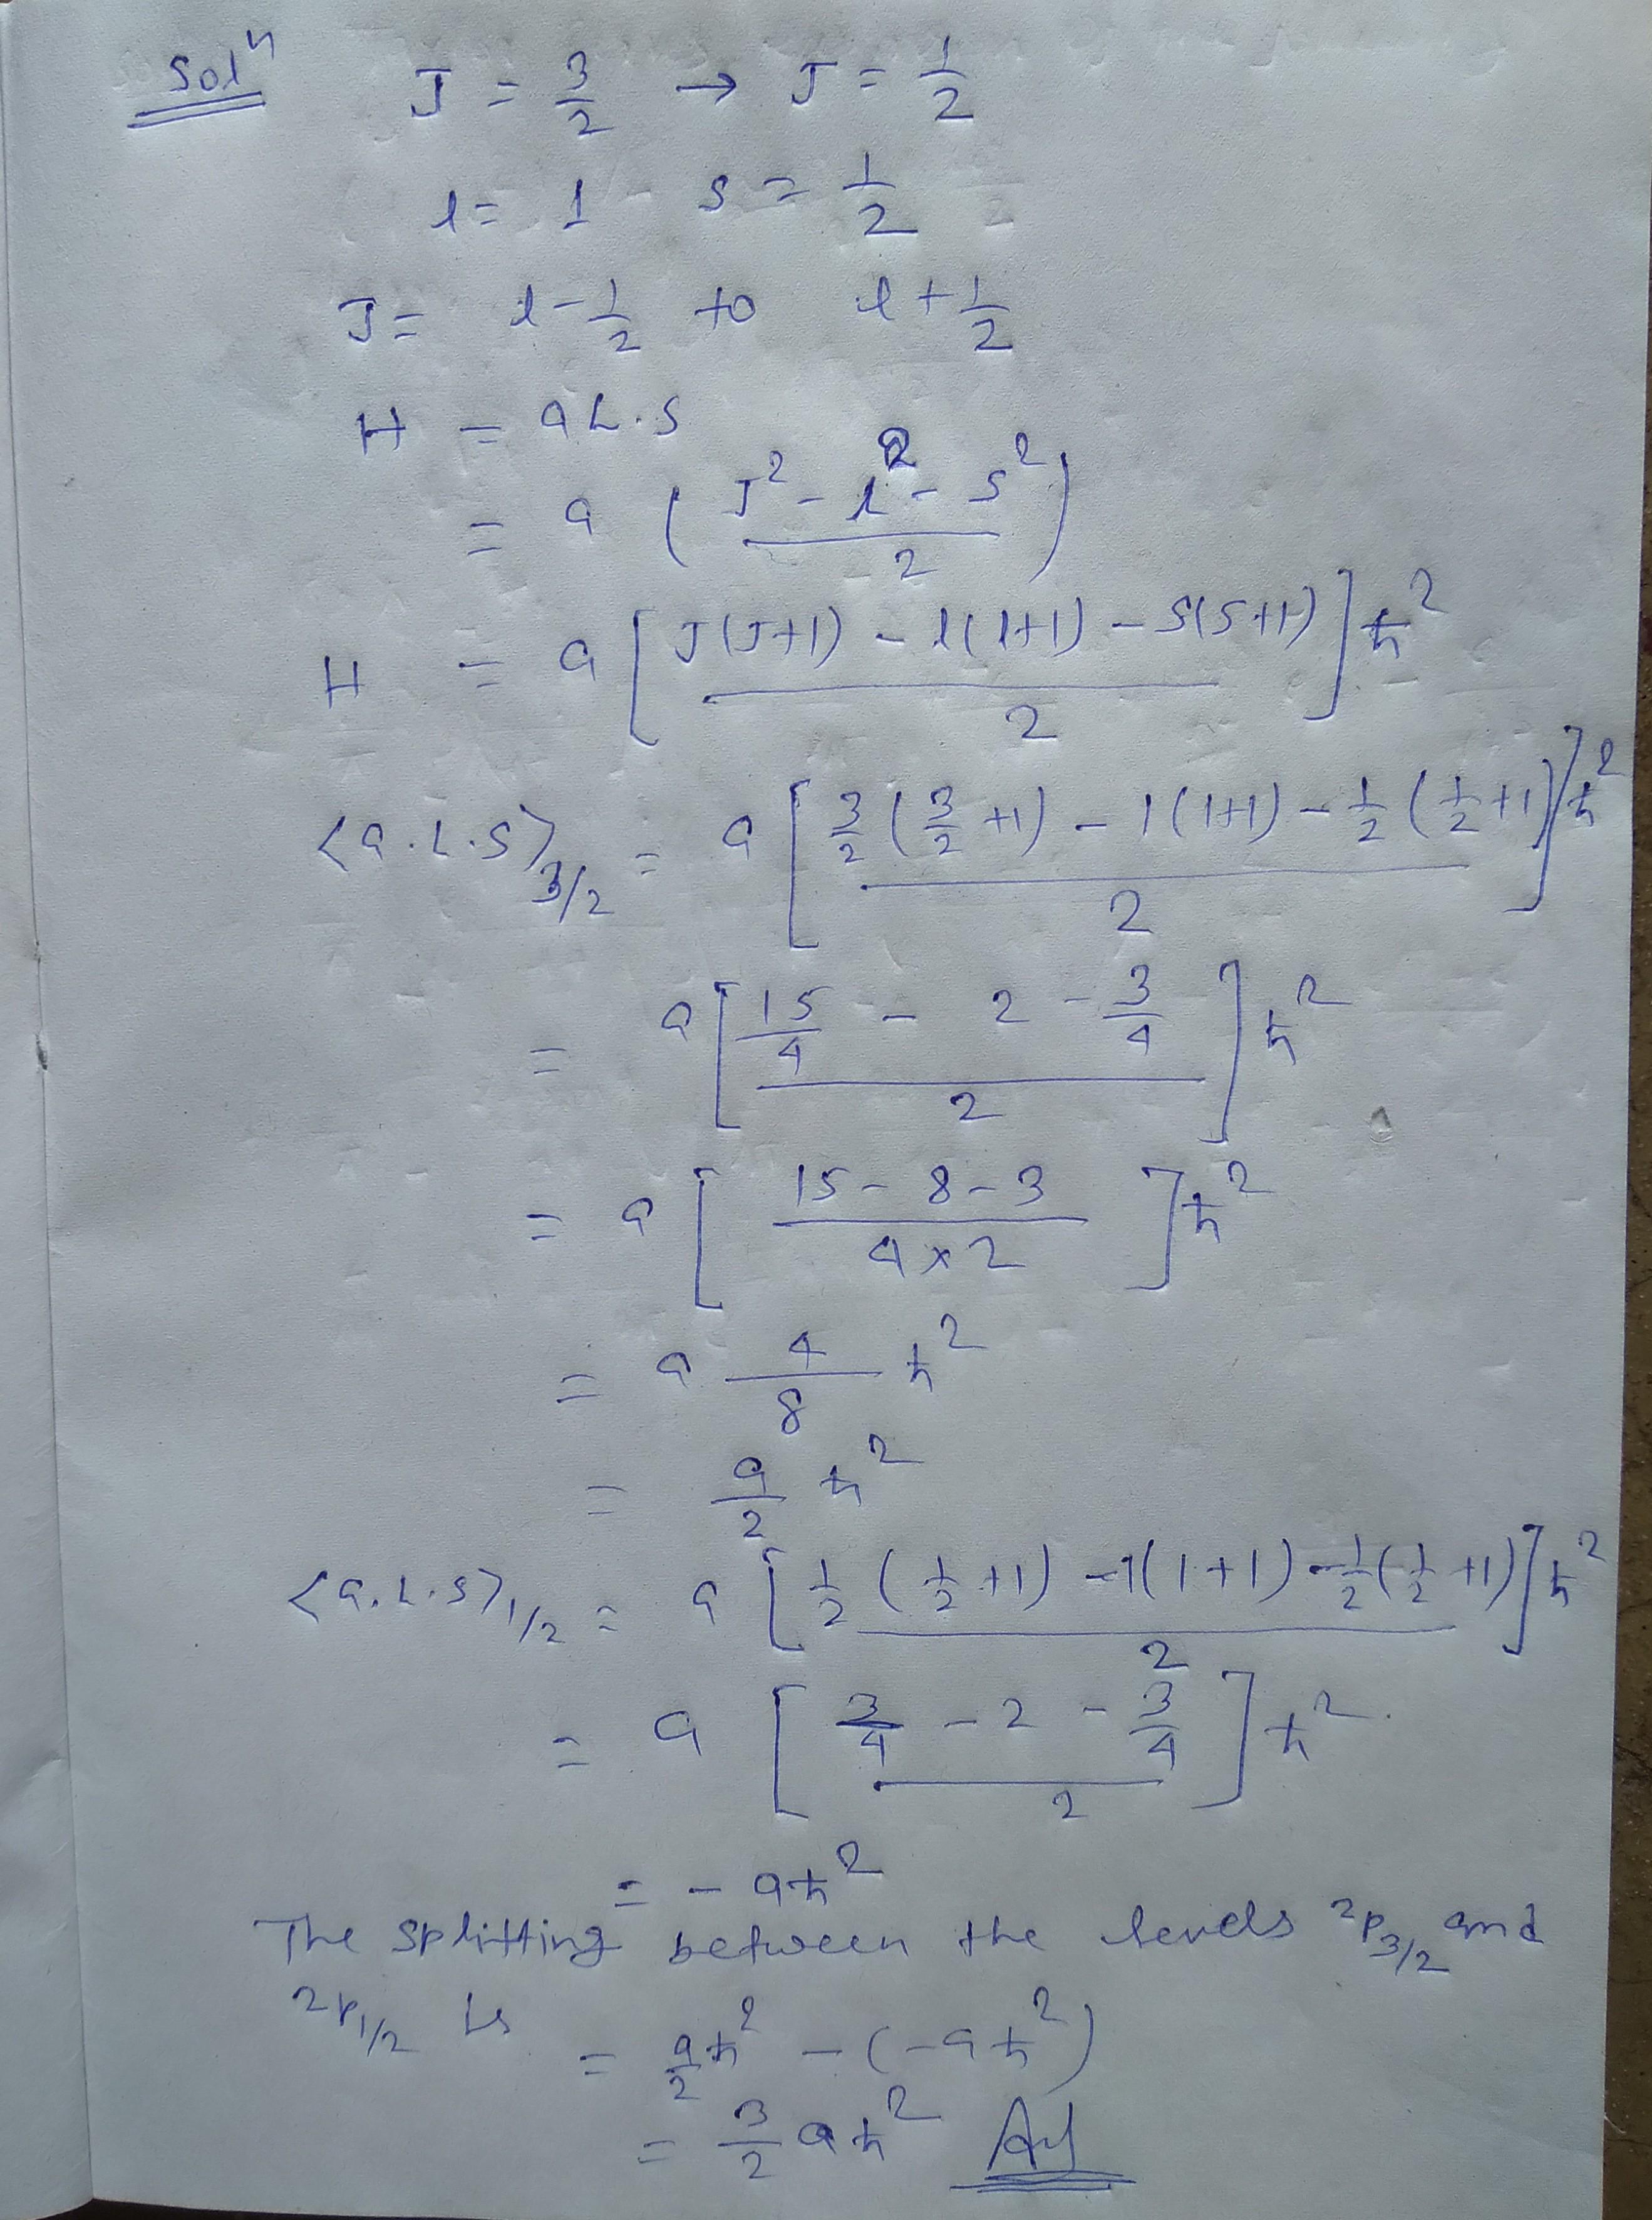 Solⁿ J = 3/2 → J = 1/2
l = 1 s = 1/2
J = l - 1/2 to l + 1/2
H = a L.S
= a ( (J² - l² - s²) / 2 )
H = a [ (J(J+1) - l(l+1) - s(s+1)) / 2 ] ħ²
<a.L.S>3/2 = a [ (3/2 (3/2 +1) - 1(1+1) - 1/2 (1/2 +1)) / 2 ] ħ²
= a [ (15/4 - 2 - 3/4) / 2 ] ħ²
= a [ (15 - 8 - 3) / (4 × 2) ] ħ²
= a 4/8 ħ²
= a/2 ħ²
<a.L.S>1/2 = a [ (1/2 (1/2 +1) - 1(1+1) - 1/2 (1/2 +1)) / 2 ] ħ²
= a [ (3/4 - 2 - 3/4) / 2 ] ħ²
= - aħ²
The splitting between the levels ²P3/2 and
²P1/2 is = a/2 ħ² - (-aħ²)
= 3/2 aħ² Ans